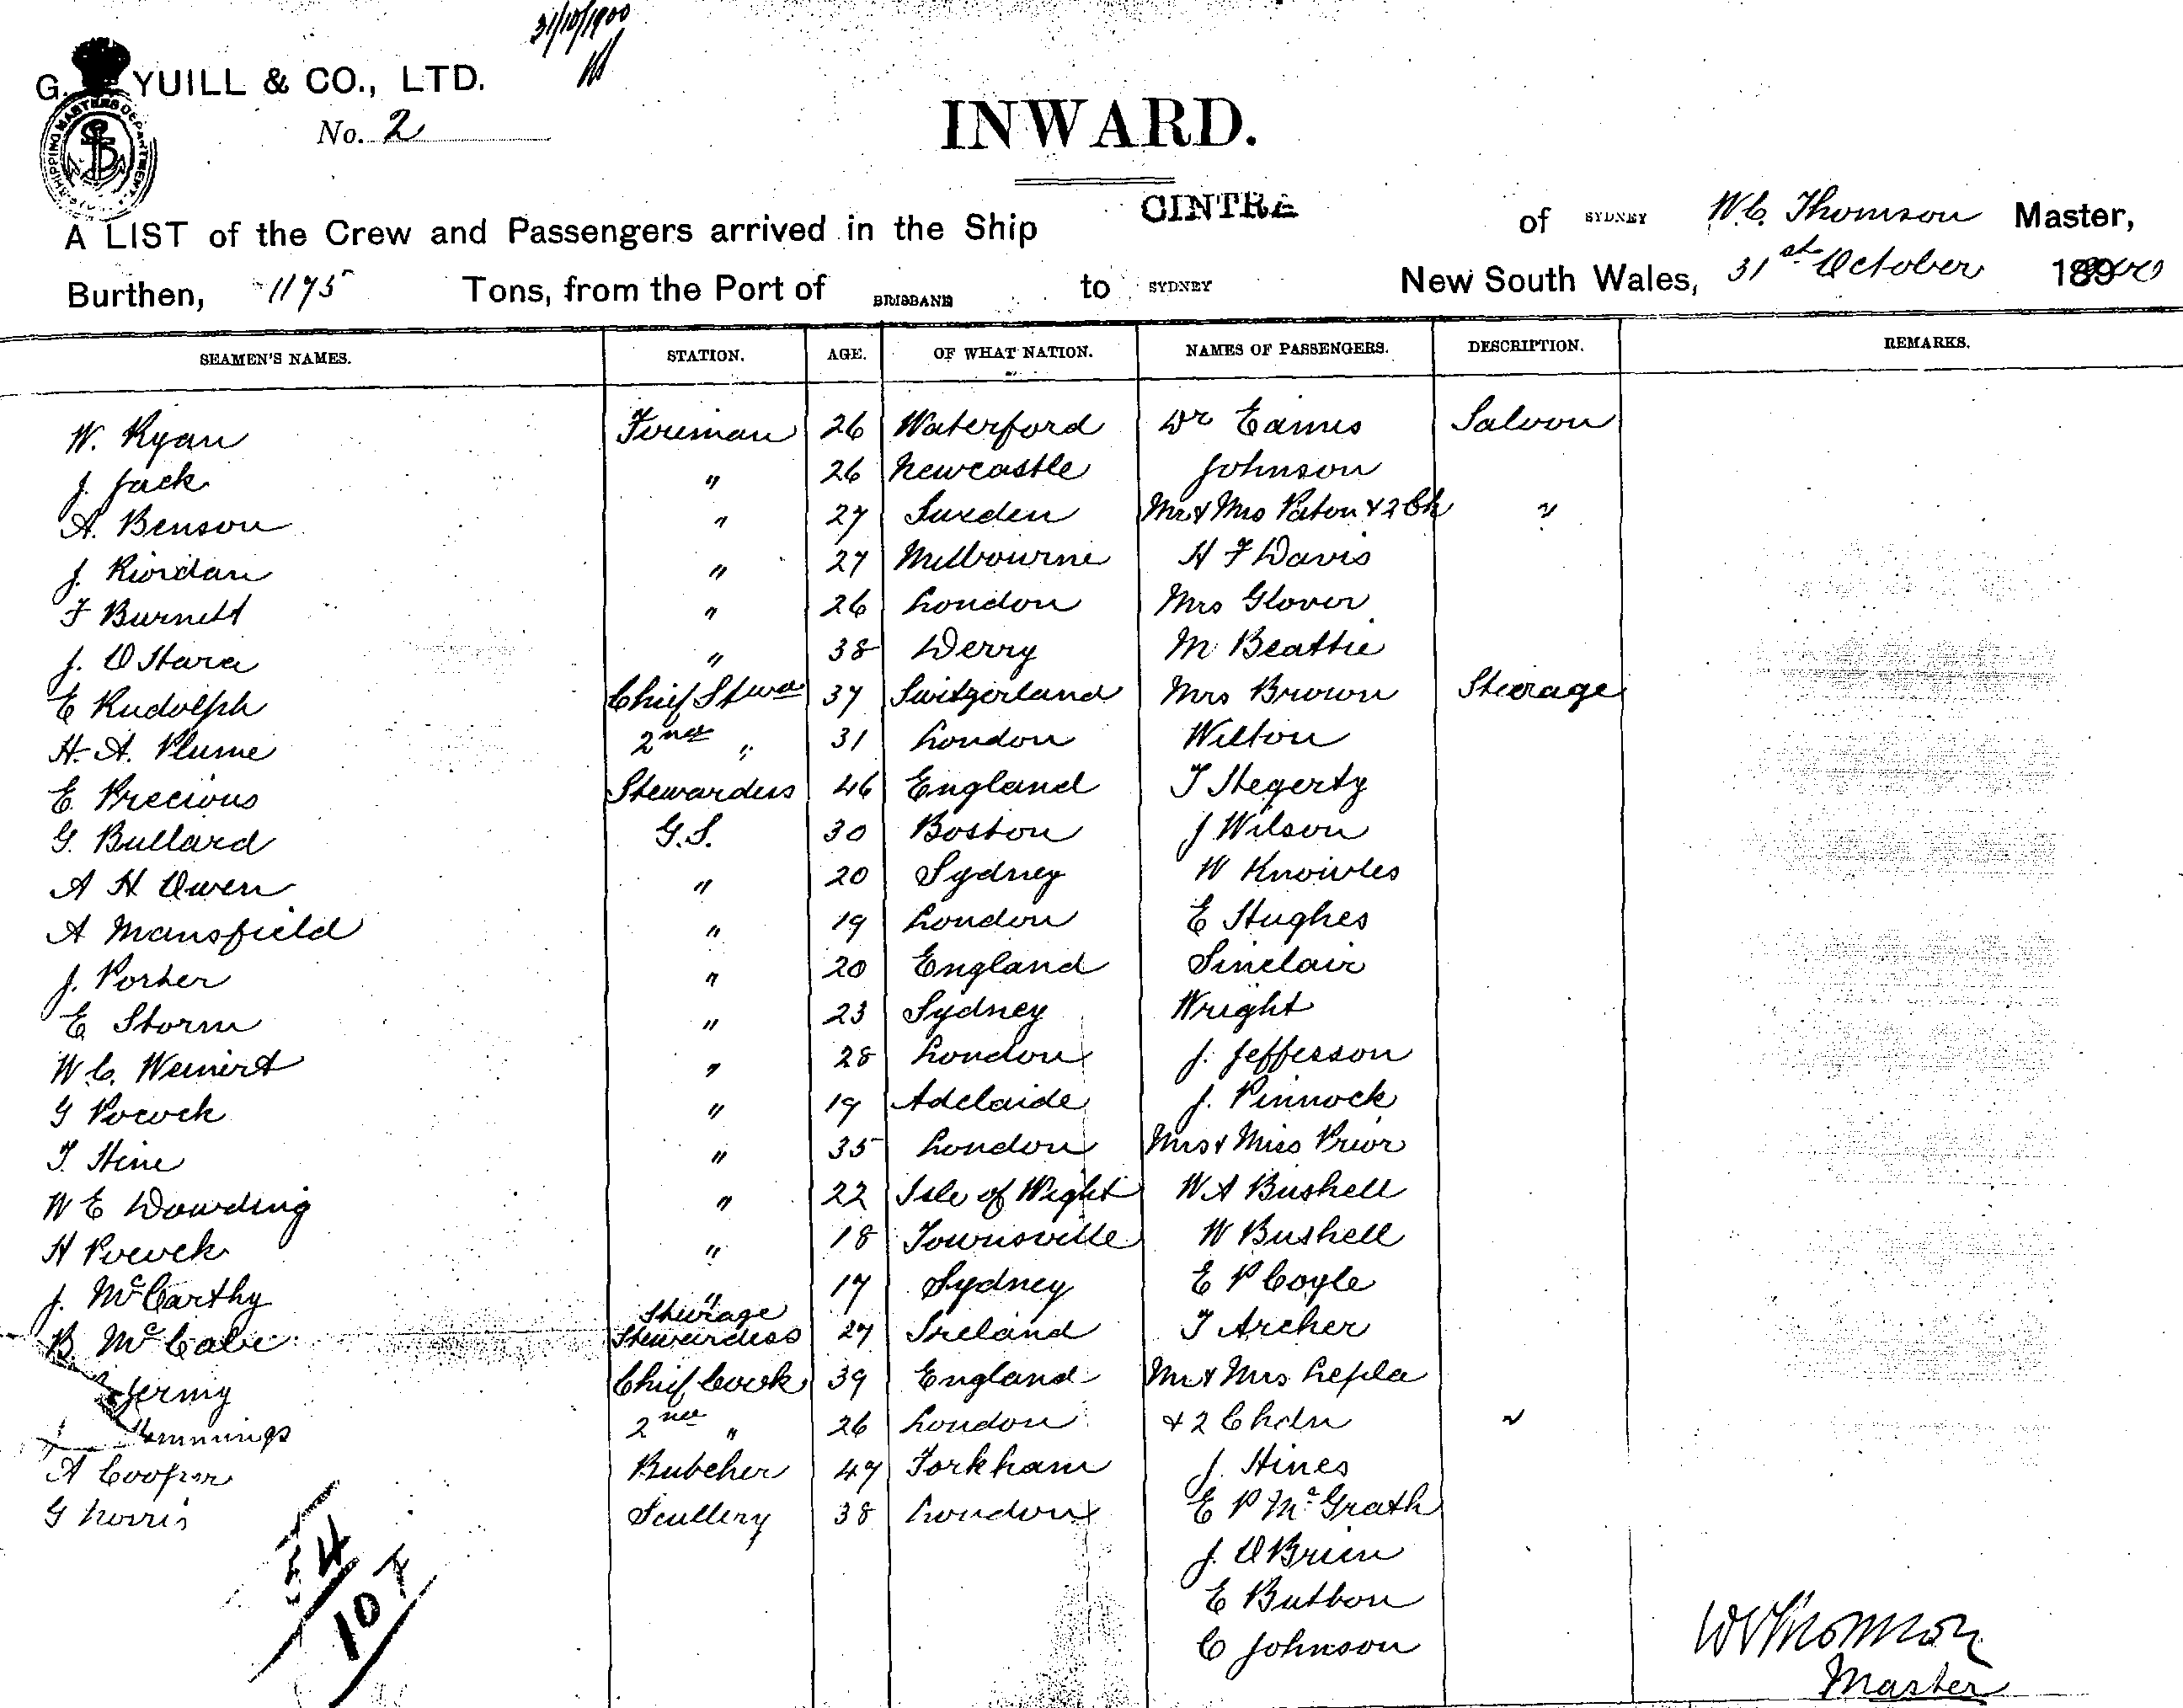 31/10/1900
G. YUILL & CO., LTD.
No. 2
SHIPPING MASTERS DEPARTMENT
INWARD.
A LIST of the Crew and Passengers arrived in the Ship CINTRA of SYDNEY W. C. Thomson Master,
Burthen, 1195 Tons, from the Port of BRISBANE to SYDNEY New South Wales, 31st October 1900
SEAMEN'S NAMES. STATION. AGE. OF WHAT NATION. NAMES OF PASSENGERS. DESCRIPTION. REMARKS.
W. Ryan Fireman 26 Waterford Dr Eames Saloon
J. Jack " 26 Newcastle Johnson
A. Benson " 27 Sweden Mr & Mrs Paton & 2 Ch "
J. Riordan " 27 Melbourne H F Davis
F Burnett " 26 London Mrs Glover
J. O Hara " 38 Derry M Beattie
E Rudolph Chief Stwd 37 Switzerland Mrs Brown Steerage
H. A. Plume 2nd " 31 London Wilton
E. Precious Stewardess 46 England T Hegerty
G. Bullard G.S. 30 Boston J Wilson
A H Owen " 20 Sydney W Knowles
A Mansfield " 19 London E Hughes
J. Porter " 20 England Sinclair
E Storm " 23 Sydney Wright
W. C. Weinert " 28 London J. Jefferson
G Pocock " 19 Adelaide J. Pinnock
T. Hine " 35 London Mrs & Miss Prior
W E Dowding " 22 Isle of Wight W A Bushell
H Pocock " 18 Townsville W Bushell
J. McCarthy " 17 Sydney E P Coyle
B. McCabe Steerage Stewardess 27 Ireland T Archer
Jermy Chief Cook 39 England Mr & Mrs Lepla
Jennings 2nd " 26 London & 2 Chdn "
A Cooper Butcher 47 Forkham J. Hines
G Norris Scullery 38 London E P McGrath
J. O Brien
E Button
C Johnson
54
107
W C Thomson
Master